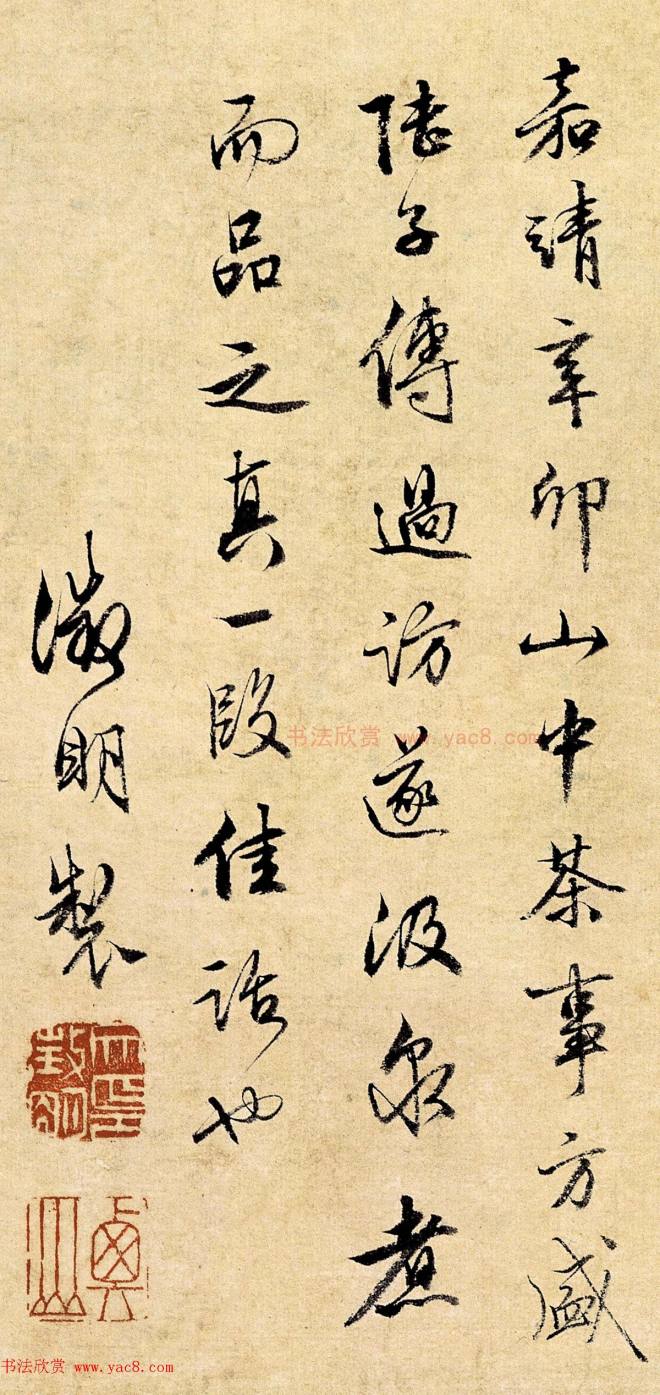 嘉靖辛卯山中茶事方盛
陸子傳過訪遂汲泉煮
而品之真一段佳話也
徵明製
書法欣赏 www.yac8.com
书法欣赏 www.yac8.com